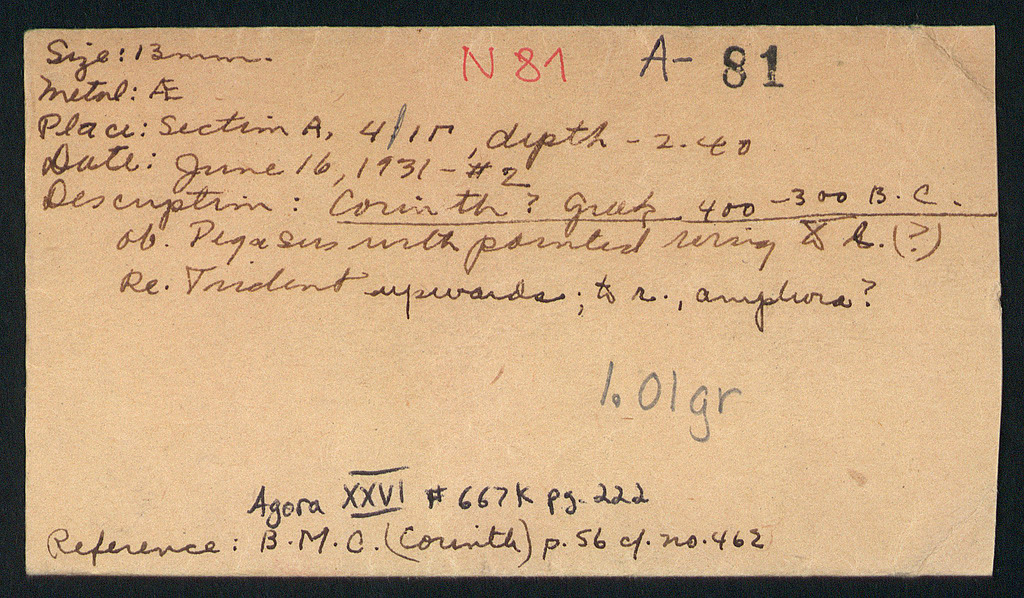 Size: 13mm. N 81 A- 81
Metal: Æ
Place: Section A, 4/ΙΓ, depth - 2.40
Date: June 16, 1931 - #2
Description: Corinth? Greek 400-300 B.C.
ob. Pegasus with pointed wing to l. (?)
Re. Trident upwards; to r., amphora?
1.01gr
Agora XXVI # 667K pg. 222
Reference: B.M.C. (Corinth) p. 56 cf. no. 462